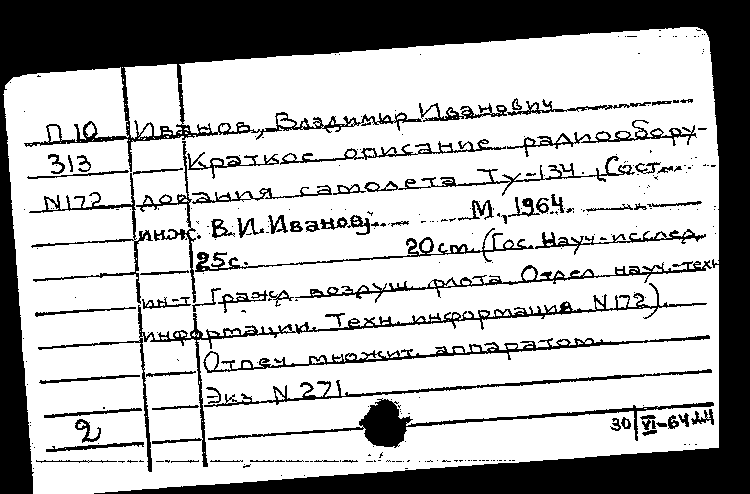 П 10 Иванов, Владимир Иванович
313 Краткое описание радиообору-
N172 дования самолета Ту-134. [Сост.
инж. В.И.Иванов]. М., 1964.
25с. 20см. (Гос. Науч-исслед.
ин-т Гражд. воздуш. флота. Отдел науч.-техн
информации. Техн. информация. N172).
Отпеч. множит. аппаратом.
Экз. N 271.
2
30 VI-64